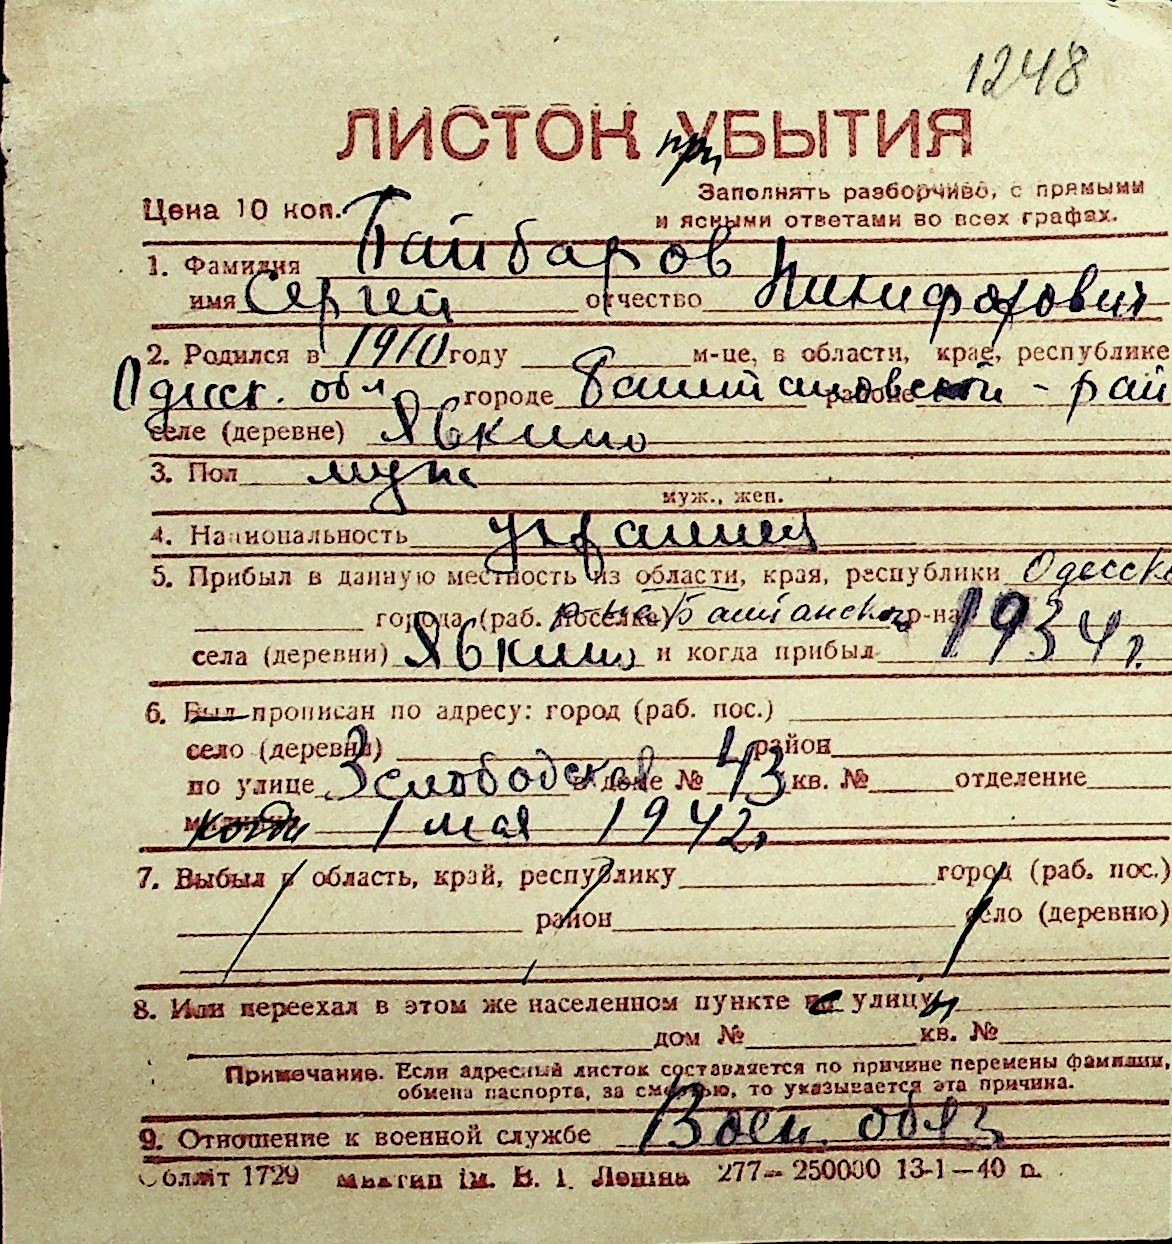 1248
ЛИСТОК при УБЫТИЯ
Заполнять разборчиво, с прямыми
Цена 10 коп.
и ясными ответами во всех графах.
1. Фамилия Байбаров
имя Сергей отчество Никифорович
2. Родился в 1910 году м-це, в области, крае, республике
Одесск. обл городе Баштановской - рай районе
селе (деревне) Явкино
3. Пол муж
муж., жен.
4. Национальность украинец
5. Прибыл в данную местность из области, края, республики Одесско
города (раб. поселка) р-на Баштанского р-на 1934 г.
села (деревни) Явкино и когда прибыл
6. Был прописан по адресу: город (раб. пос.)
село (деревня) район
по улице 3 слободская в доме № 43 кв. № отделение
когда 1 мая 1942 г.
7. Выбыл в область, край, республику город (раб. пос.)
район село (деревню)
8. Или переехал в этом же населенном пункте с улицы
дом № кв. №
Примечание. Если адресный листок составляется по причине перемены фамилии,
обмена паспорта, за смертью, то указывается эта причина.
9. Отношение к военной службе Воен. обяз
Облліт 1729 ім. В. І. Леніна 277— 250000 13-1—40 р.